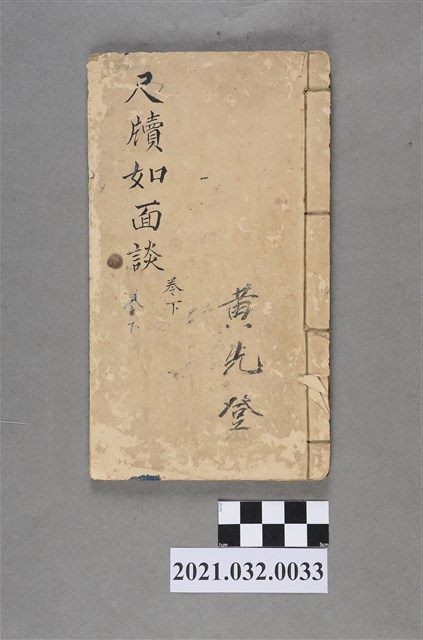 黃先登
尺牘如面談
卷下
卷下
2021.032.0033